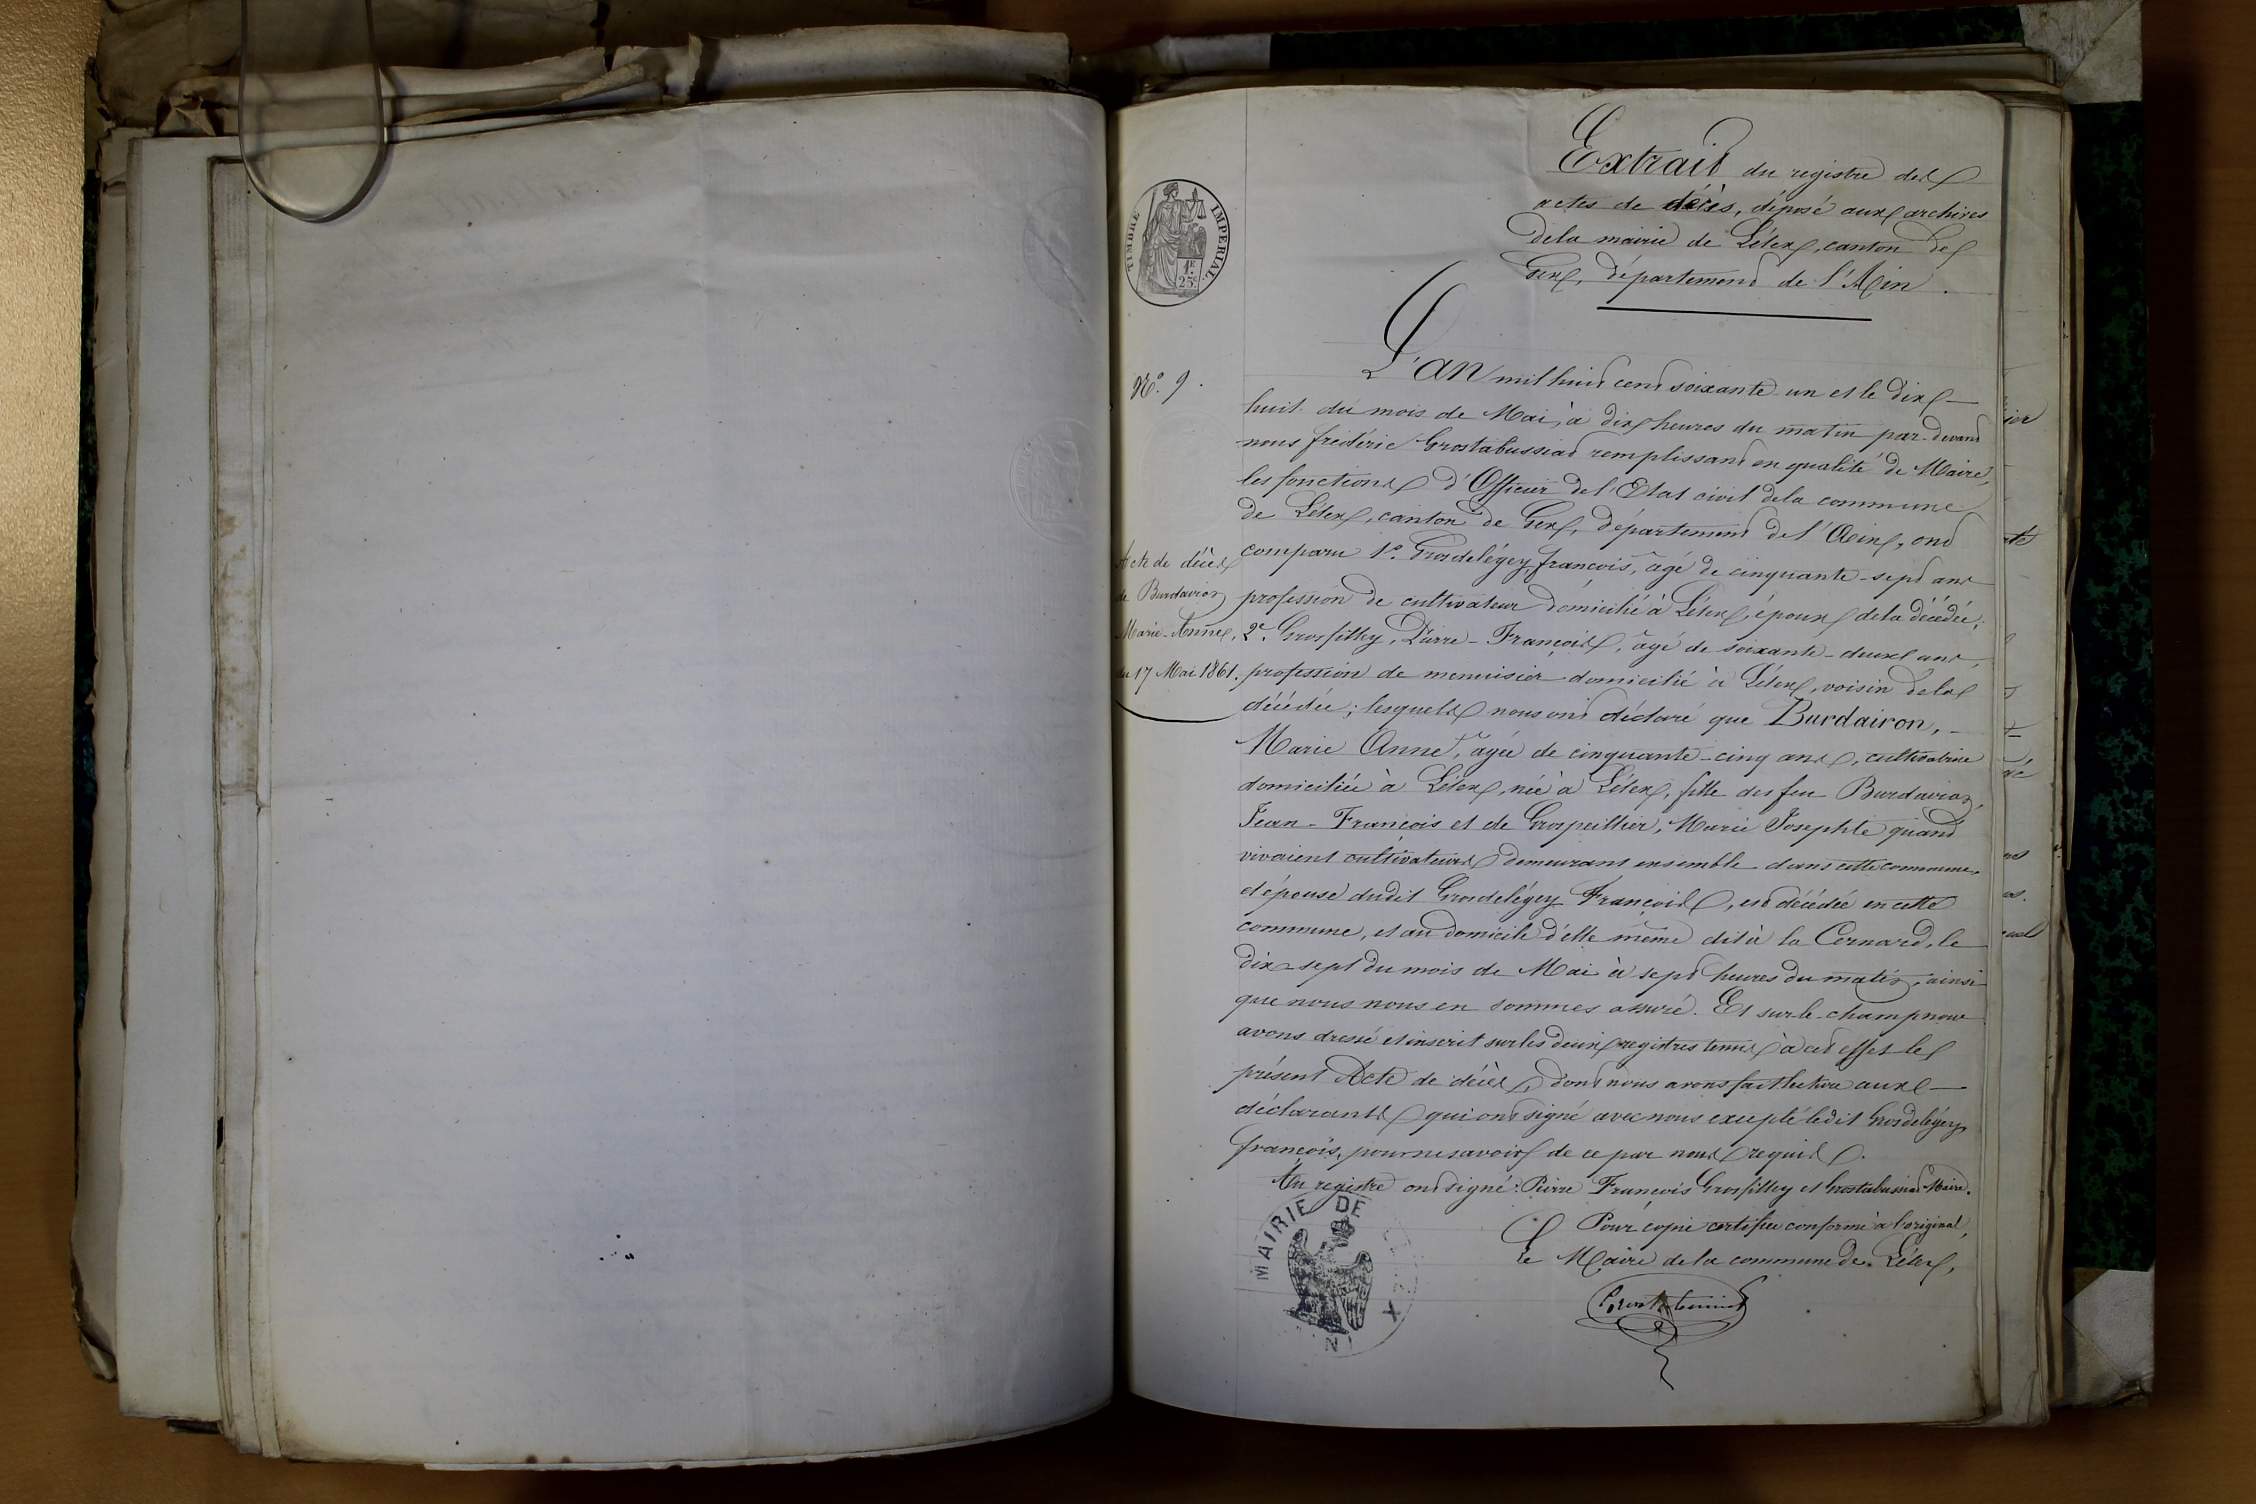 Extrait du registre des
actes de décès, déposé aux archives
de la mairie de Lélex, canton de
Gex, département de l'Ain.
TIMBRE IMPERIAL
1F.
25c
L'an mil huit cent soixante-un et le dix-
N.o 9.
huit du mois de Mai, à dix heures du matin par-devant
nous frédéric Grostabussiat remplissant en qualité de Maire,
les fonctions d'Officier de l'Etat civil de la commune
de Lélex, canton de Gex, département de l'Ain, ont
comparu 1.o Grosdelégey, françois, âgé de cinquante-sept ans
profession de cultivateur domicilié à Lélex, époux de la décédée;
2.e Grosfilley, Pierre-François, âgé de soixante-deux ans,
profession de menuisier domicilié à Lélex, voisin de la
décédée; lesquels nous ont déclaré que Burdairon,
Marie Anne, âgée de cinquante-cinq ans, cultivatrice
domiciliée à Lélex, née à Lélex, fille des feu Burdairon,
Jean-François et de Grospeillier, Marie Josephte quand
vivaient cultivateurs demeurant ensemble dans cette commune,
et épouse dudit Grosdelégey François, est décédée en cette
commune, et au domicile d'elle même dit à la Cernard, le
dix-sept du mois de Mai à sept heures du matin, ainsi
que nous nous en sommes assuré. Et sur-le-champ nous
avons dressé et inscrit sur les deux registres tenus à cet effet le
présent Acte de décès, dont nous avons fait lecture aux
déclarants qui ont signé avec nous excepté ledit Grosdelégey
françois, pour ne savoir de ce par nous requis.
Au registre ont signé: Pierre François Grosfilley et Grostabussiat Maire.
Pour copie certifiée conforme à l'original,
Le Maire de la commune de Lélex,
Acte de décès
de Burdairon
Marie-Anne,
du 17 Mai 1861.
MAIRIE DE
X